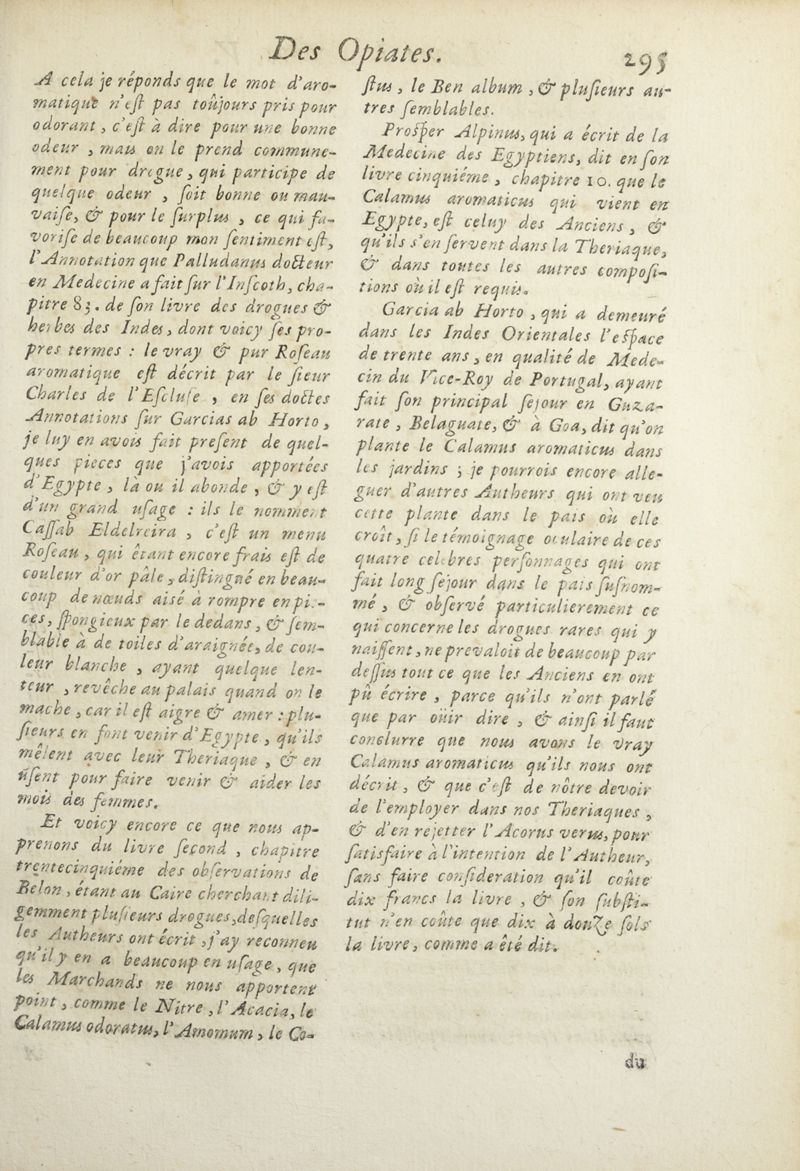 Des Opiates. 295
A cela je réponds que le mot d'aro-
matique n'eſt pas toûjours pris pour
odorant, c'eſt à dire pour une bonne
odeur, mais on le prend commune-
ment pour drogue, qui participe de
quelque odeur, ſoit bonne ou mau-
vaiſe, & pour le ſurplus, ce qui fa-
voriſe de beaucoup mon ſentiment eſt,
l'Annotation que Palludanus docteur
en Medecine a fait ſur l'Inſcoth, cha-
pitre 83. de ſon livre des drogues &
herbes des Indes, dont voicy ſes pro-
pres termes : le vray & pur Roſeau
aromatique eſt décrit par le ſieur
Charles de l'Eſcluſe, en ſes doctes
Annotations ſur Garcias ab Horto,
je luy en avois fait preſent de quel-
ques pieces que j'avois apportées
d'Egypte, là ou il abonde, & y eſt
d'un grand uſage : ils le nomment
Caſſab Eldelreira, c'eſt un menu
Roſeau, qui étant encore frais eſt de
couleur d'or pâle, diſtingué en beau-
coup de nœuds aisé à rompre en pie-
ces, ſpongieux par le dedans, & ſem-
blable à de toiles d'araignée, de cou-
leur blanche, ayant quelque len-
teur, revêche au palais quand on le
mache, car il eſt aigre & amer : plu-
ſieurs en font venir d'Egypte, qu'ils
mêlent avec leur Theriaque, & en
uſent pour faire venir & aider les
mois des femmes.
Et voicy encore ce que nous ap-
prenons du livre ſecond, chapitre
trentecinquiéme des obſervations de
Belon, étant au Caire cherchant dili-
gemment pluſieurs drogues, deſquelles
les Autheurs ont écrit, j'ay reconneu
qu'il y en a beaucoup en uſage, que
les Marchands ne nous apportent
point, comme le Nitre, l'Acacia, le
Calamus odoratus, l'Amomum, le Co-
ſtus, le Ben album, & pluſieurs au-
tres ſemblables.
Proſper Alpinus, qui a écrit de la
Medecine des Egyptiens, dit en ſon
livre cinquiéme, chapitre 10. que le
Calamus aromaticus qui vient en
Egypte, eſt celuy des Anciens, &
qu'ils s'en ſervent dans la Theriaque,
& dans toutes les autres compoſi-
tions où il eſt requis.
Garcia ab Horto, qui a demeuré
dans les Indes Orientales l'eſpace
de trente ans, en qualité de Mede-
cin du Vice-Roy de Portugal, ayant
fait ſon principal ſejour en Guza-
rate, Belaguate, & à Goa, dit qu'on
plante le Calamus aromaticus dans
les jardins ; je pourrois encore alle-
guer d'autres Autheurs qui ont veu
cette plante dans le païs où elle
croît, ſi le témoignage oculaire de ces
quatre celebres perſonnages qui ont
fait long ſejour dans le païs ſuſnom-
mé, & obſervé particulierement ce
qui concerne les drogues rares qui y
naiſſent, ne prevaloit de beaucoup par
deſſus tout ce que les Anciens en ont
pû écrire, parce qu'ils n'ont parlé
que par oüir dire, & ainſi il faut
conclurre que nous avons le vray
Calamus aromaticus qu'ils nous ont
décrit, & que c'eſt de nôtre devoir
de l'employer dans nos Theriaques,
& d'en rejetter l'Acorus verus, pour
ſatisfaire à l'intention de l'Autheur,
ſans faire conſideration qu'il coûte
dix francs la livre, & ſon ſubſti-
tut n'en coûte que dix à douze ſols
la livre, comme a été dit.
du